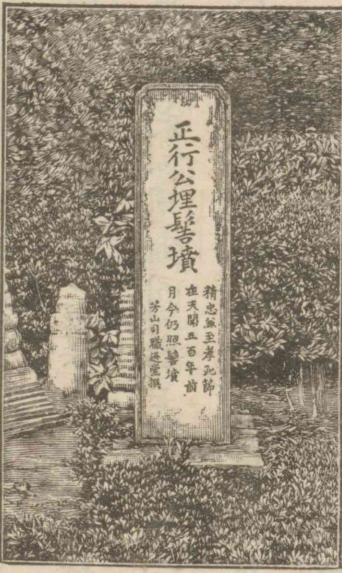 正行公埋髻墳
精忠兼至孝死節
在天聞五百年前
月今仍照髻墳
芳山司職堂撰